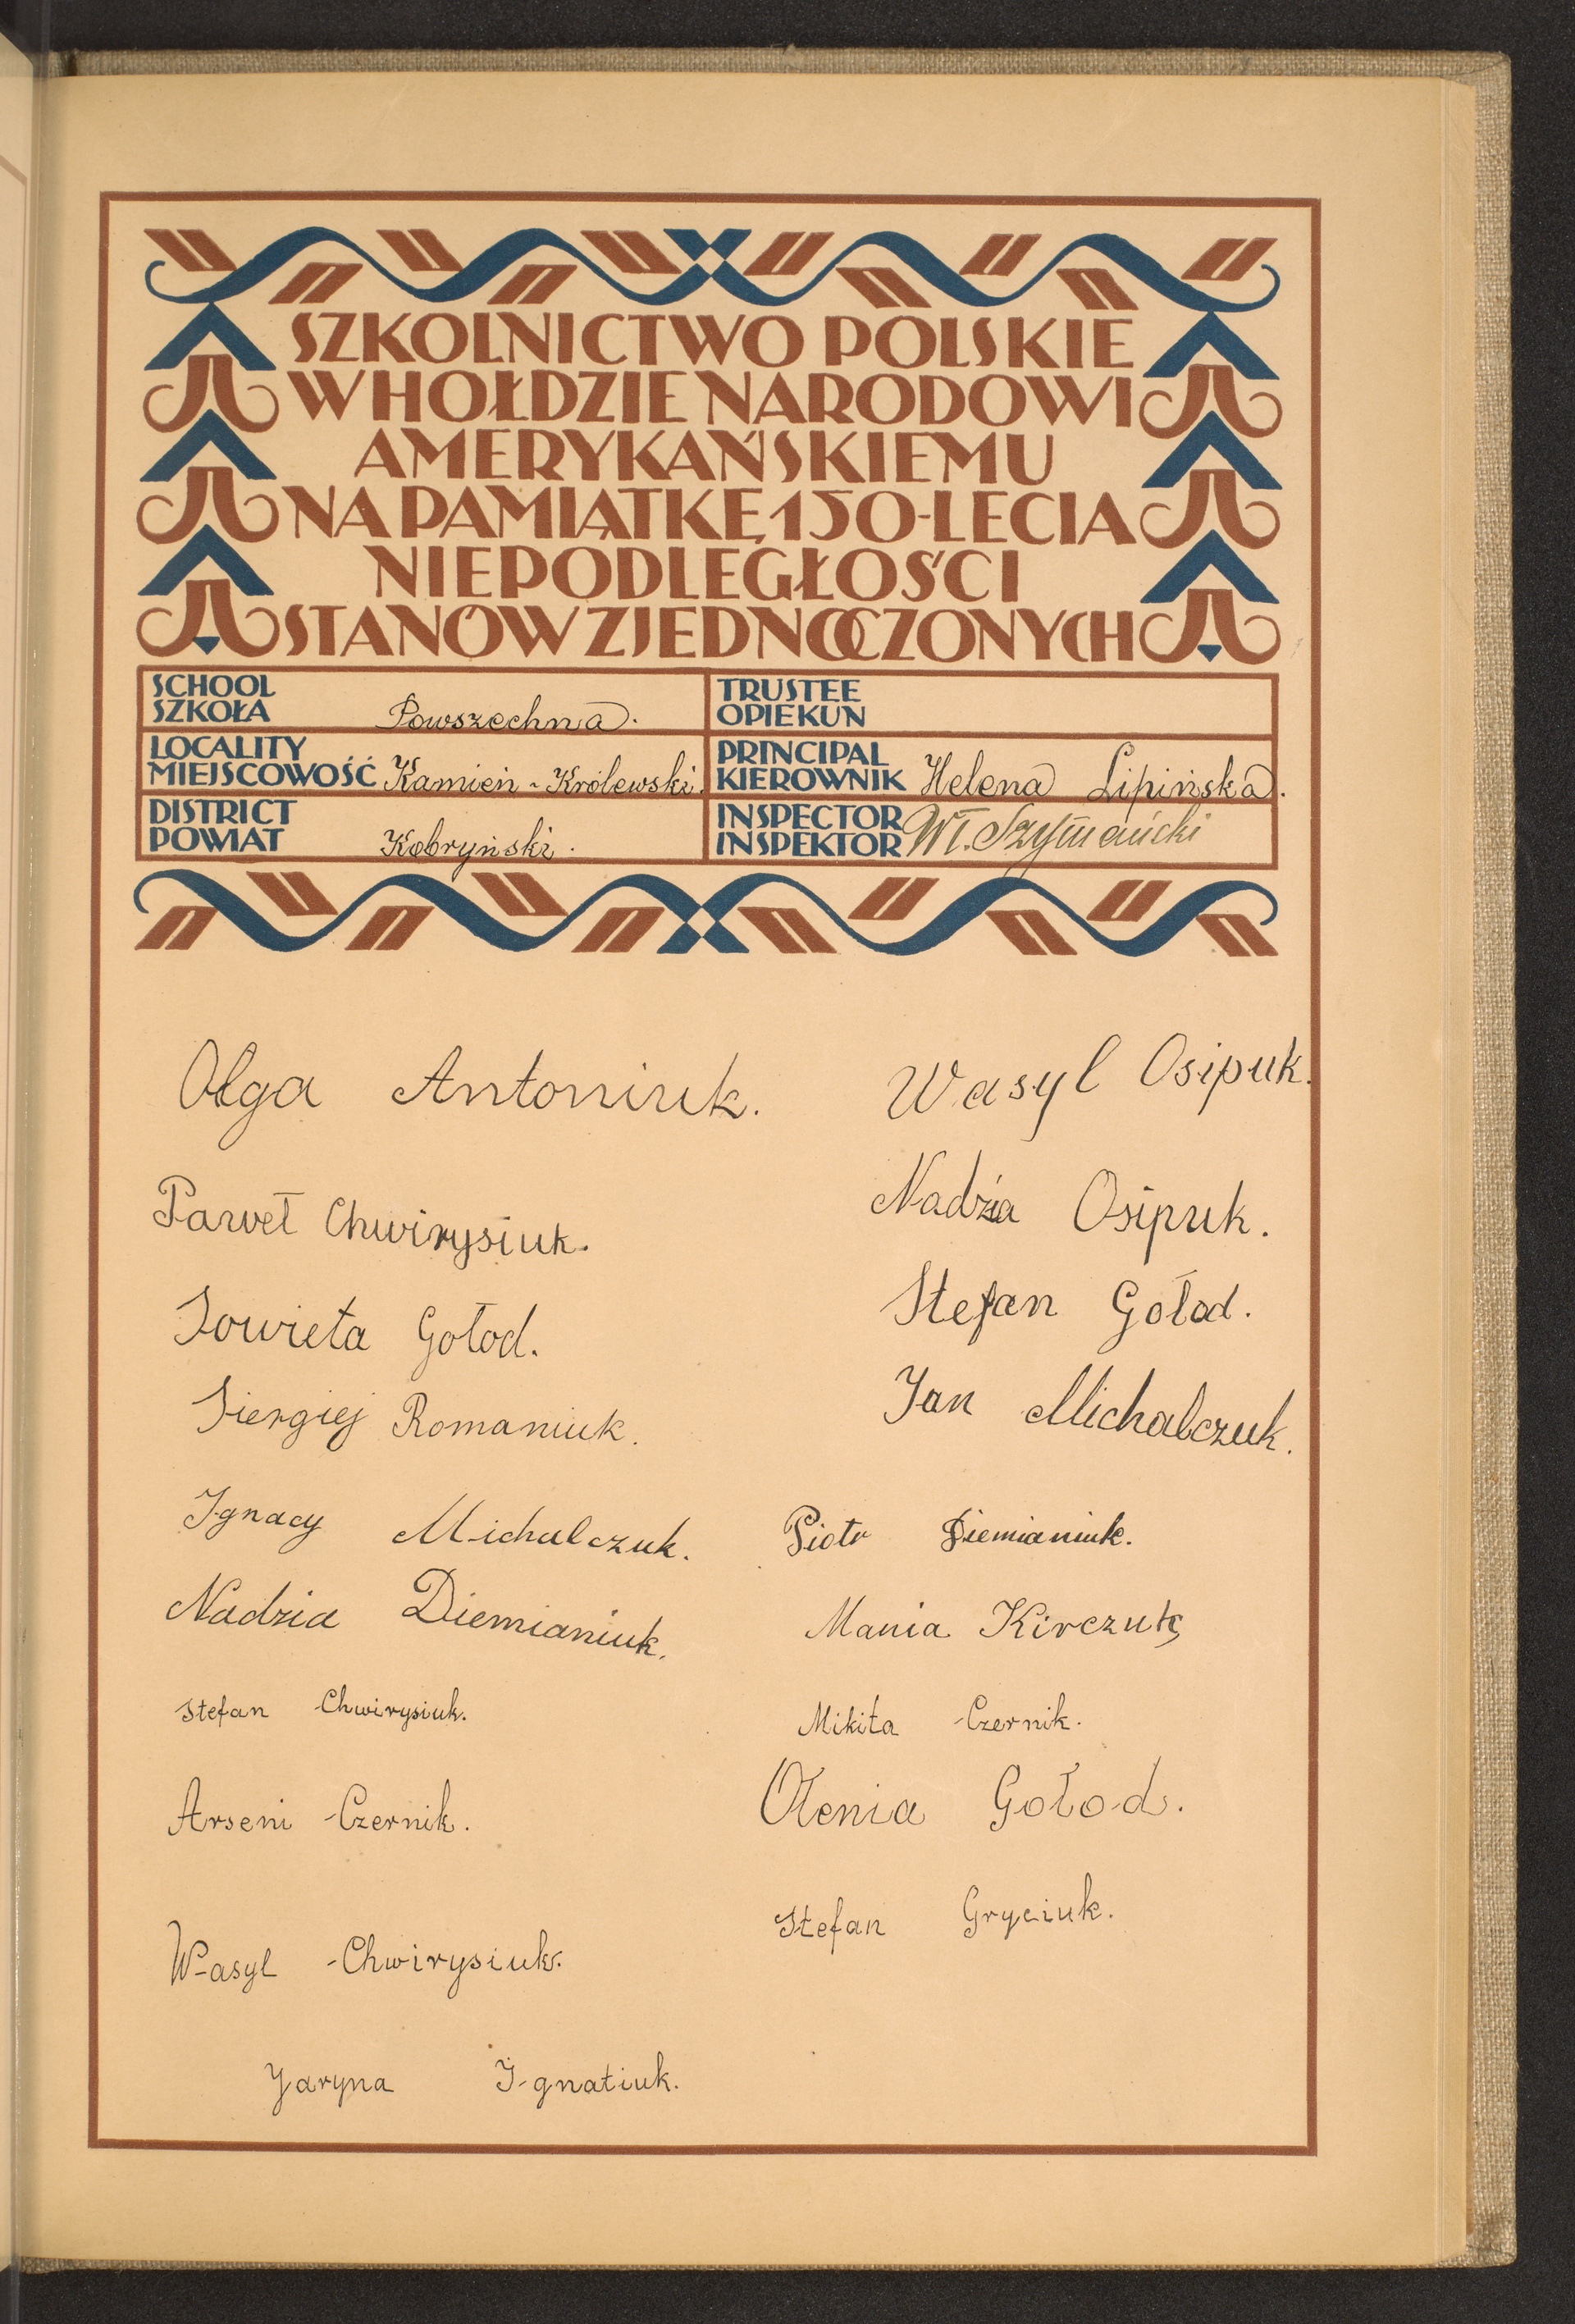 SZKOLNICTWO POLSKIE
W HOŁDZIE NARODOWI
AMERYKAŃSKIEMU
NA PAMIĄTKĘ 150-LECIA
NIEPODLEGŁOŚCI
STANÓW ZJEDNOCZONYCH
SCHOOL
SZKOŁA Powszechna.
TRUSTEE
OPIEKUN
LOCALITY
MIEJSCOWOŚĆ Kamień-Królewski.
PRINCIPAL
KIEROWNIK Helena Lipińska.
DISTRICT
POWIAT Kobryński.
INSPECTOR
INSPEKTOR Wł. Szymański
Olga Antoniuk.
Paweł Chwirysiuk.
Sowieta Gołod.
Siergiej Romaniuk.
Ignacy Michalczuk.
Nadzia Diemianiuk.
Stefan Chwirysiuk.
Arseni Czernik.
Wasyl Chwirysiuk.
Jaryna Ignatiuk.
Wasyl Osipuk.
Nadzia Osipuk.
Stefan Gołod.
Jan Michalczuk.
Piotr Diemianiuk.
Mania Kirczuk
Mikita Czernik.
Ołenia Gołod.
Stefan Gryciuk.